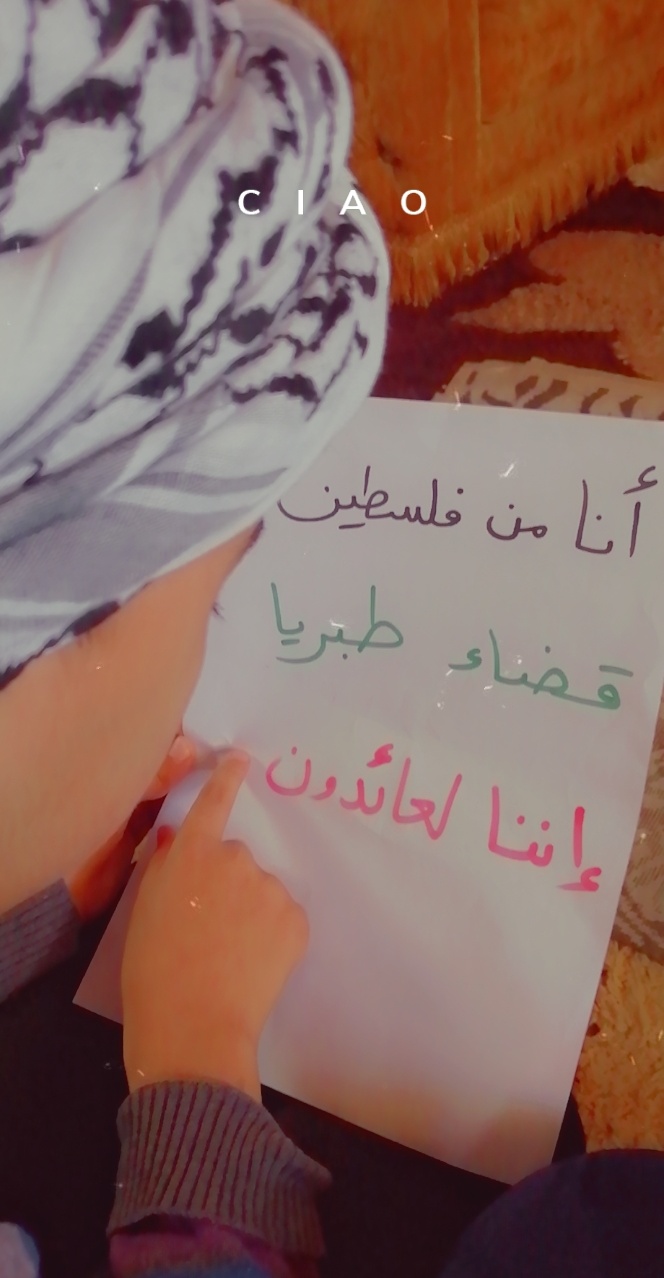 CIAO
أنا من فلسطين
قضاء طبريا
إننا لعائدون